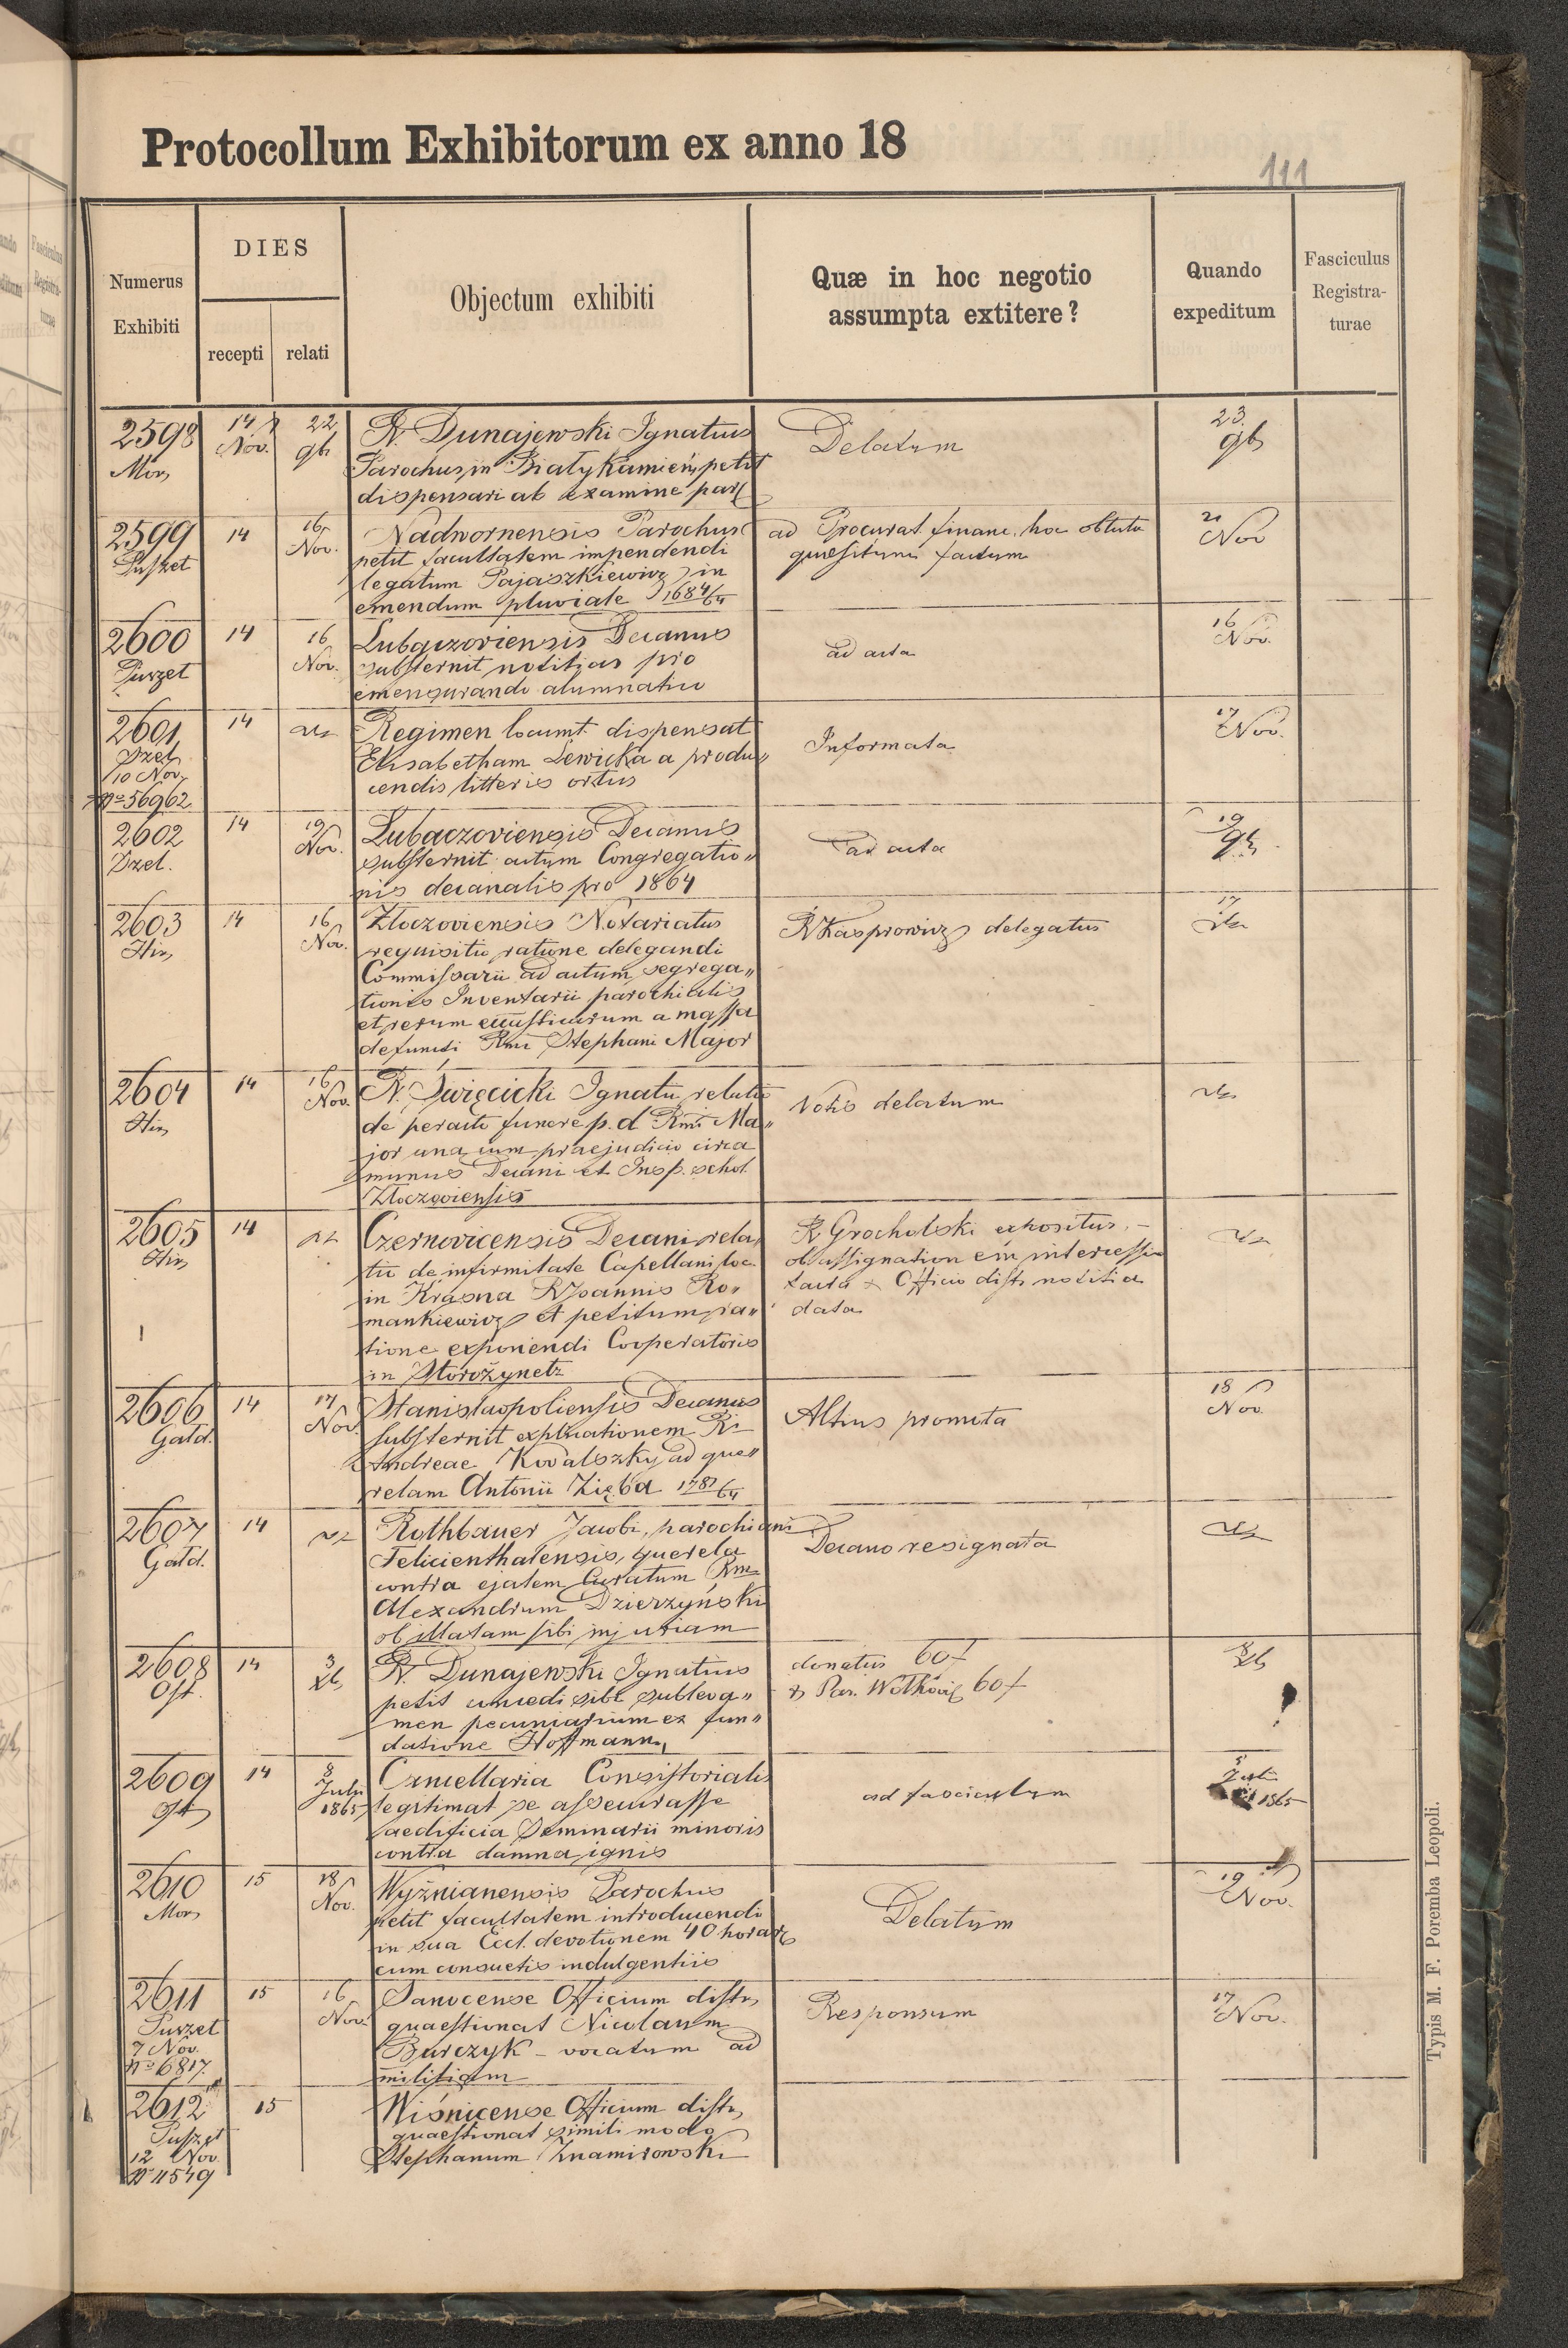 Protocollum Exhibitorum ex anno 18
111
Numerus Exhibiti
DIES
recepti
relati
Objectum exhibiti
Quæ in hoc negotio assumpta extitere?
Quando expeditum
Fasciculus Registra-turae
2598
14 Nov.
22 9b
R. Dunajewski Ignatius
Parochus in Białykamień petit
dispensari ab examine par
Delatum
23. 9b
2599
14
16 Nov.
Nadwornensis Parochus
petit facultatem impendendi
legatum Pajaszkiewicz in
emendum pluviale 1684/64
ad Procurat. financ. hoc
quæsitum factum
Nov
2600
Puszet
14
16 Nov.
Lubaczoviensis Decanus
substernit notitias pro
alumnatico
ad acta
16 Nov.
2601
14
Regimen locumt. dispensat
Elisabetham Lewicka a produ„
cendis litteris ortus
10 Nov.
No 56962
Informata
17 Nov.
2602
Dzel.
14
19 Nov.
Lubaczoviensis Decanus
substernit actum Congregatio„
nis decanalis pro 1864
ad acta
19 9b
2603
14
16 Nov.
Złoczoviensis Notariatus
requisitio ratione delegandi
Commissarii ad actum segrega„
tionis Inventarii parochialis
et rerum a massa
defuncti Rmi Stephani Major
R Kasprowicz delegatus
17
2604
14
16 Nov.
R. Święcicki Ignatii relatio
de peracto funere p. d. Rmi Ma„
jor una cum praejudicio circa
munus Decani et Insp. schol.
Złoczoviensis
Notis delatum
2605
14
Czernovicensis Decani rela„
tio de infirmitate Capellani loc.
in Krasna R Joannis Ro„
mankiewicz et petitum ra„
tione exponendi Cooperatoris
in Storożynetz
R Grocholski expositus. –
ob assignationem intercessio
facta & Officio distr. notitia
data
2606
Gald.
14
17 Nov.
Stanislaopoliensis Decanus
substernit explicationem Ri
Andreae Kovalszky ad que„
relam Antonii Zięba 1781/64
Altius promota
18 Nov.
2607
Gald.
14
Rothbauer Jacobi, parochiani
Felicienthalensis, querela
contra ejatem Curatum Rm
Alexandrum Dzierzyński
ob illatam sibi injuriam
Decano resignata
2608
14
3 Xb
R. Dunajewski Ignatius
petit concedi sibi subleva„
men pecuniarium ex fun„
datione Hoffmann
donatus 60 f
& Par. 60 f
8 Xb
2609
14
8 Julii 1865
Cancellaria Consistorialis
legitimat se assecurasse
aedificia Seminarii minoris
contra damna ignis
ad fasciculum
Julii 1865
2610
Mor
15
18 Nov.
Wyżnianensis Parochus
petit facultatem introducendi
in sua Eccl. devotionem 40 horar
cum consuetis indulgentiis
Delatum
19 Nov.
2611
Puszet
7 Nov.
No 6817.
15
16 Nov.
Sanocense Officium distr.
quaestionat Nicolaum
Burczyk – vocatum ad
militiam
Responsum
17 Nov.
2612
Puszet
12 Nov.
No 11549
15
Wiśnicense Officium distr.
quaestionat simili modo
Stephanum Znamirowski
Typis M. F. Poremba Leopoli.